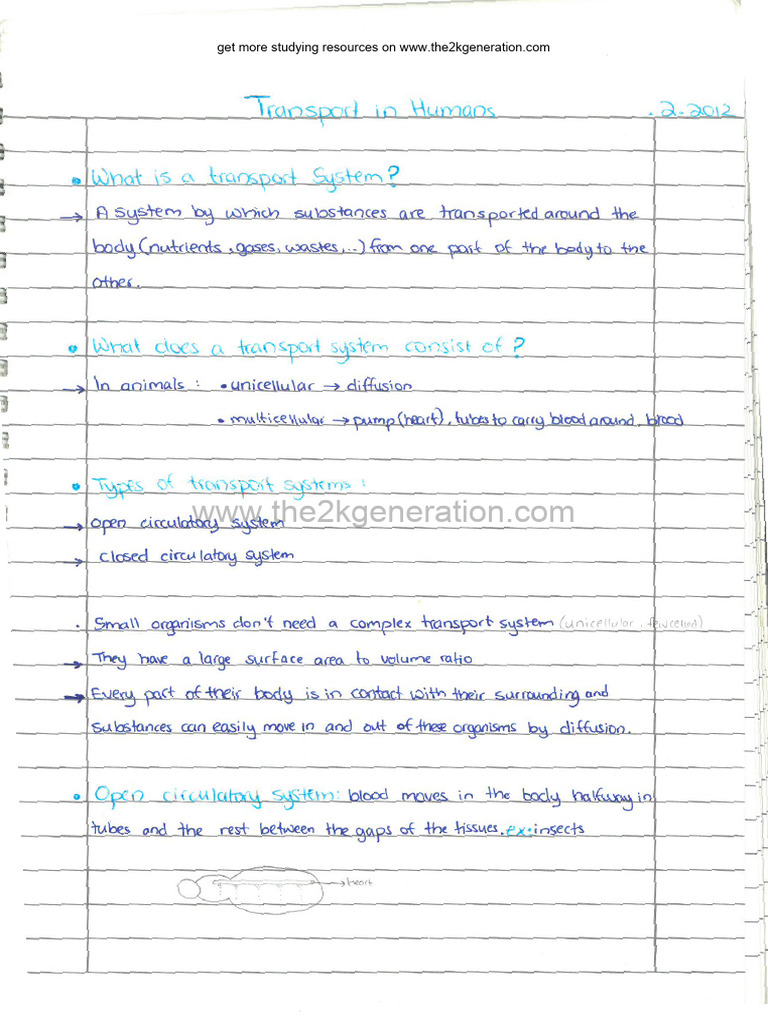 get more studying resources on www.the2kgeneration.com
Transport in Humans .2.2012
• What is a transport System?
→ A system by which substances are transported around the
body (nutrients, gases, wastes, ...) from one part of the body to the
other.
• What does a transport system consist of?
→ In animals : • unicellular → diffusion
• multicellular → pump (heart), tubes to carry blood around, blood
• Types of transport systems :
www.the2kgeneration.com
→ open circulatory system
→ closed circulatory system
. Small organisms don't need a complex transport system (unicellular, few celled)
→ They have a large surface area to volume ratio
→ Every part of their body is in contact with their surrounding and
substances can easily move in and out of these organisms by diffusion.
• Open circulatory system: blood moves in the body halfway in
tubes and the rest between the gaps of the tissues. ex: insects
→ heart